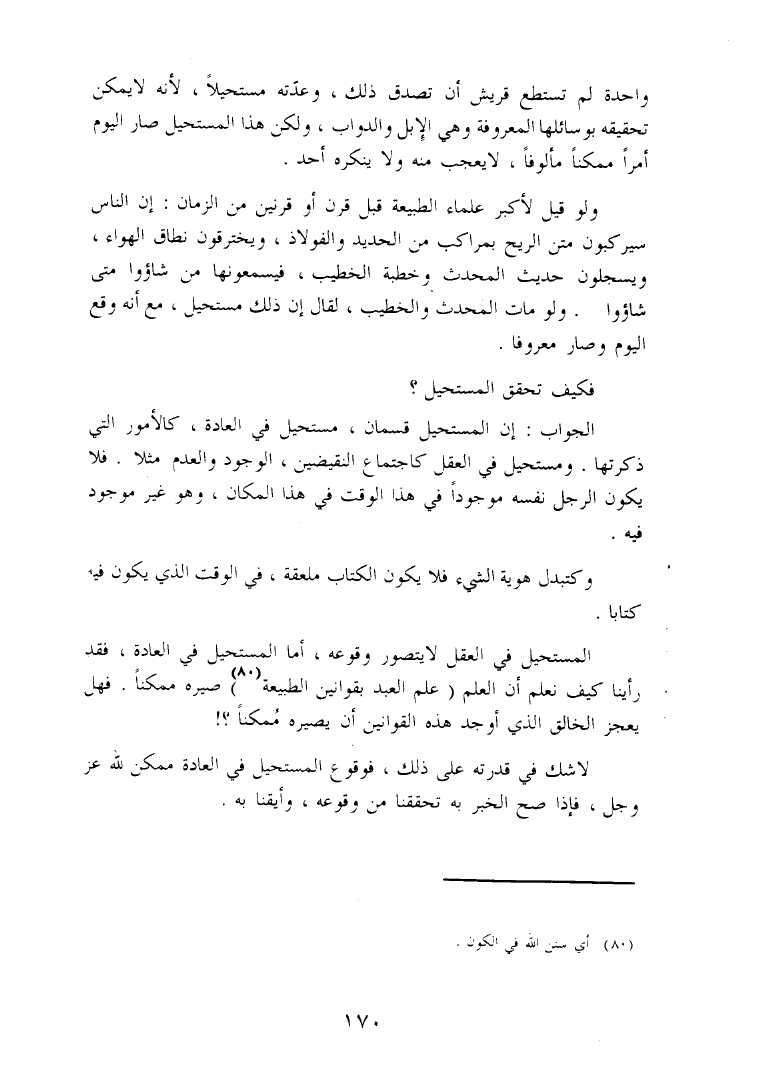 واحدة لم تستطع قريش أن تصدق ذلك ، وعدّته مستحيلاً ، لأنه لايمكن
تحقيقه بوسائلها المعروفة وهي الإبل والدواب ، ولكن هذا المستحيل صار اليوم
أمراً ممكناً مألوفاً ، لايعجب منه ولا ينكره أحد .
ولو قيل لأكبر علماء الطبيعة قبل قرن أو قرنين من الزمان : إن الناس
سيركبون متن الريح بمراكب من الحديد والفولاذ ، ويخترقون نطاق الهواء ،
ويسجلون حديث المحدث وخطبة الخطيب ، فيسمعونها من شاؤوا متى
شاؤوا . ولو مات المحدث والخطيب ، لقال إن ذلك مستحيل ، مع أنه وقع
اليوم وصار معروفا .
فكيف تحقق المستحيل ؟
الجواب : إن المستحيل قسمان ، مستحيل في العادة ، كالأمور التي
ذكرتها . ومستحيل في العقل كاجتماع النقيضين ، الوجود والعدم مثلا . فلا
يكون الرجل نفسه موجوداً في هذا الوقت في هذا المكان ، وهو غير موجود
فيه .
وكتبدل هوية الشيء فلا يكون الكتاب ملعقة ، في الوقت الذي يكون فيه
كتابا .
المستحيل في العقل لايتصور وقوعه ، أما المستحيل في العادة ، فقد
رأينا كيف نعلم أن العلم ( علم العبد بقوانين الطبيعة(٨٠) ) صيره ممكناً . فهل
يعجز الخالق الذي أوجد هذه القوانين أن يصيره مُمكناً ؟!
لاشك في قدرته على ذلك ، فوقوع المستحيل في العادة ممكن لله عز
وجل ، فإذا صح الخبر به تحققنا من وقوعه ، وأيقنا به .
(٨٠) أي سنن الله في الكون .
١٧٠